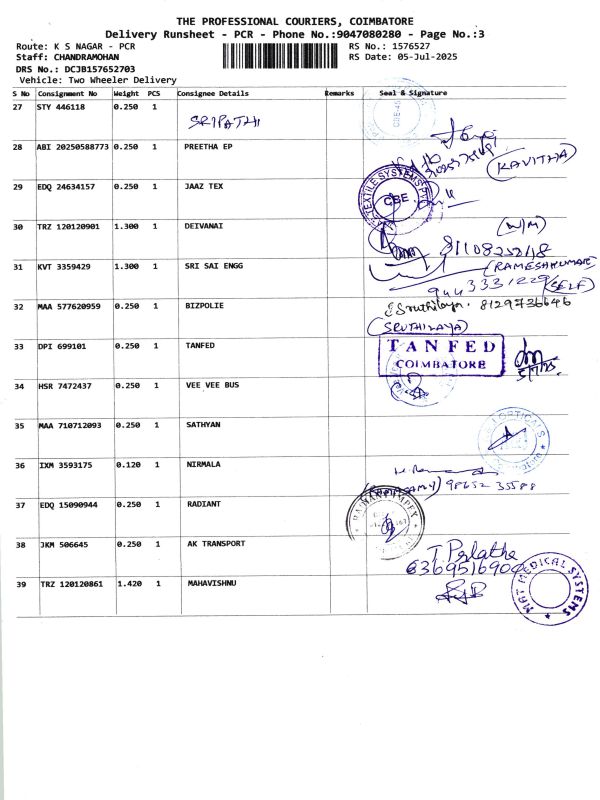 THE PROFESSIONAL COURIERS, COIMBATORE
Delivery Runsheet - PCR - Phone No.:9047080280 - Page No.:3
Route: K S NAGAR - PCR RS No.: 1576527
Staff: CHANDRAMOHAN RS Date: 05-Jul-2025
DRS No.: DCJB157652703
Vehicle: Two Wheeler Delivery
S No Consignment No Weight PCS Consignee Details Remarks Seal & Signature
27 STY 446118 0.250 1 SRIPATHI
28 ABI 20250588773 0.250 1 PREETHA EP
(KAVITHA)
29 EDQ 24634157 0.250 1 JAAZ TEX
TEXTILE SYSTEMS
CBE
30 TRZ 120120901 1.300 1 DEIVANAI
(W/M)
31 KVT 3359429 1.300 1 SRI SAI ENGG
(RAMESHKUMAR)
9443331229 (SELF)
32 MAA 577620959 0.250 1 BIZPOLIE
Sruthilaya. 8129736646
(SRUTHILAYA)
33 DPI 699101 0.250 1 TANFED
TANFED
COIMBATORE
5/7/25
34 HSR 7472437 0.250 1 VEE VEE BUS
35 MAA 710712093 0.250 1 SATHYAN
OPTICALS
36 IXM 3593175 0.120 1 NIRMALA
98652 35588
37 EDQ 15090944 0.250 1 RADIANT
38 JKM 506645 0.250 1 AK TRANSPORT
6369516900
39 TRZ 120120861 1.420 1 MAHAVISHNU
MAT MEDICAL SYSTEMS